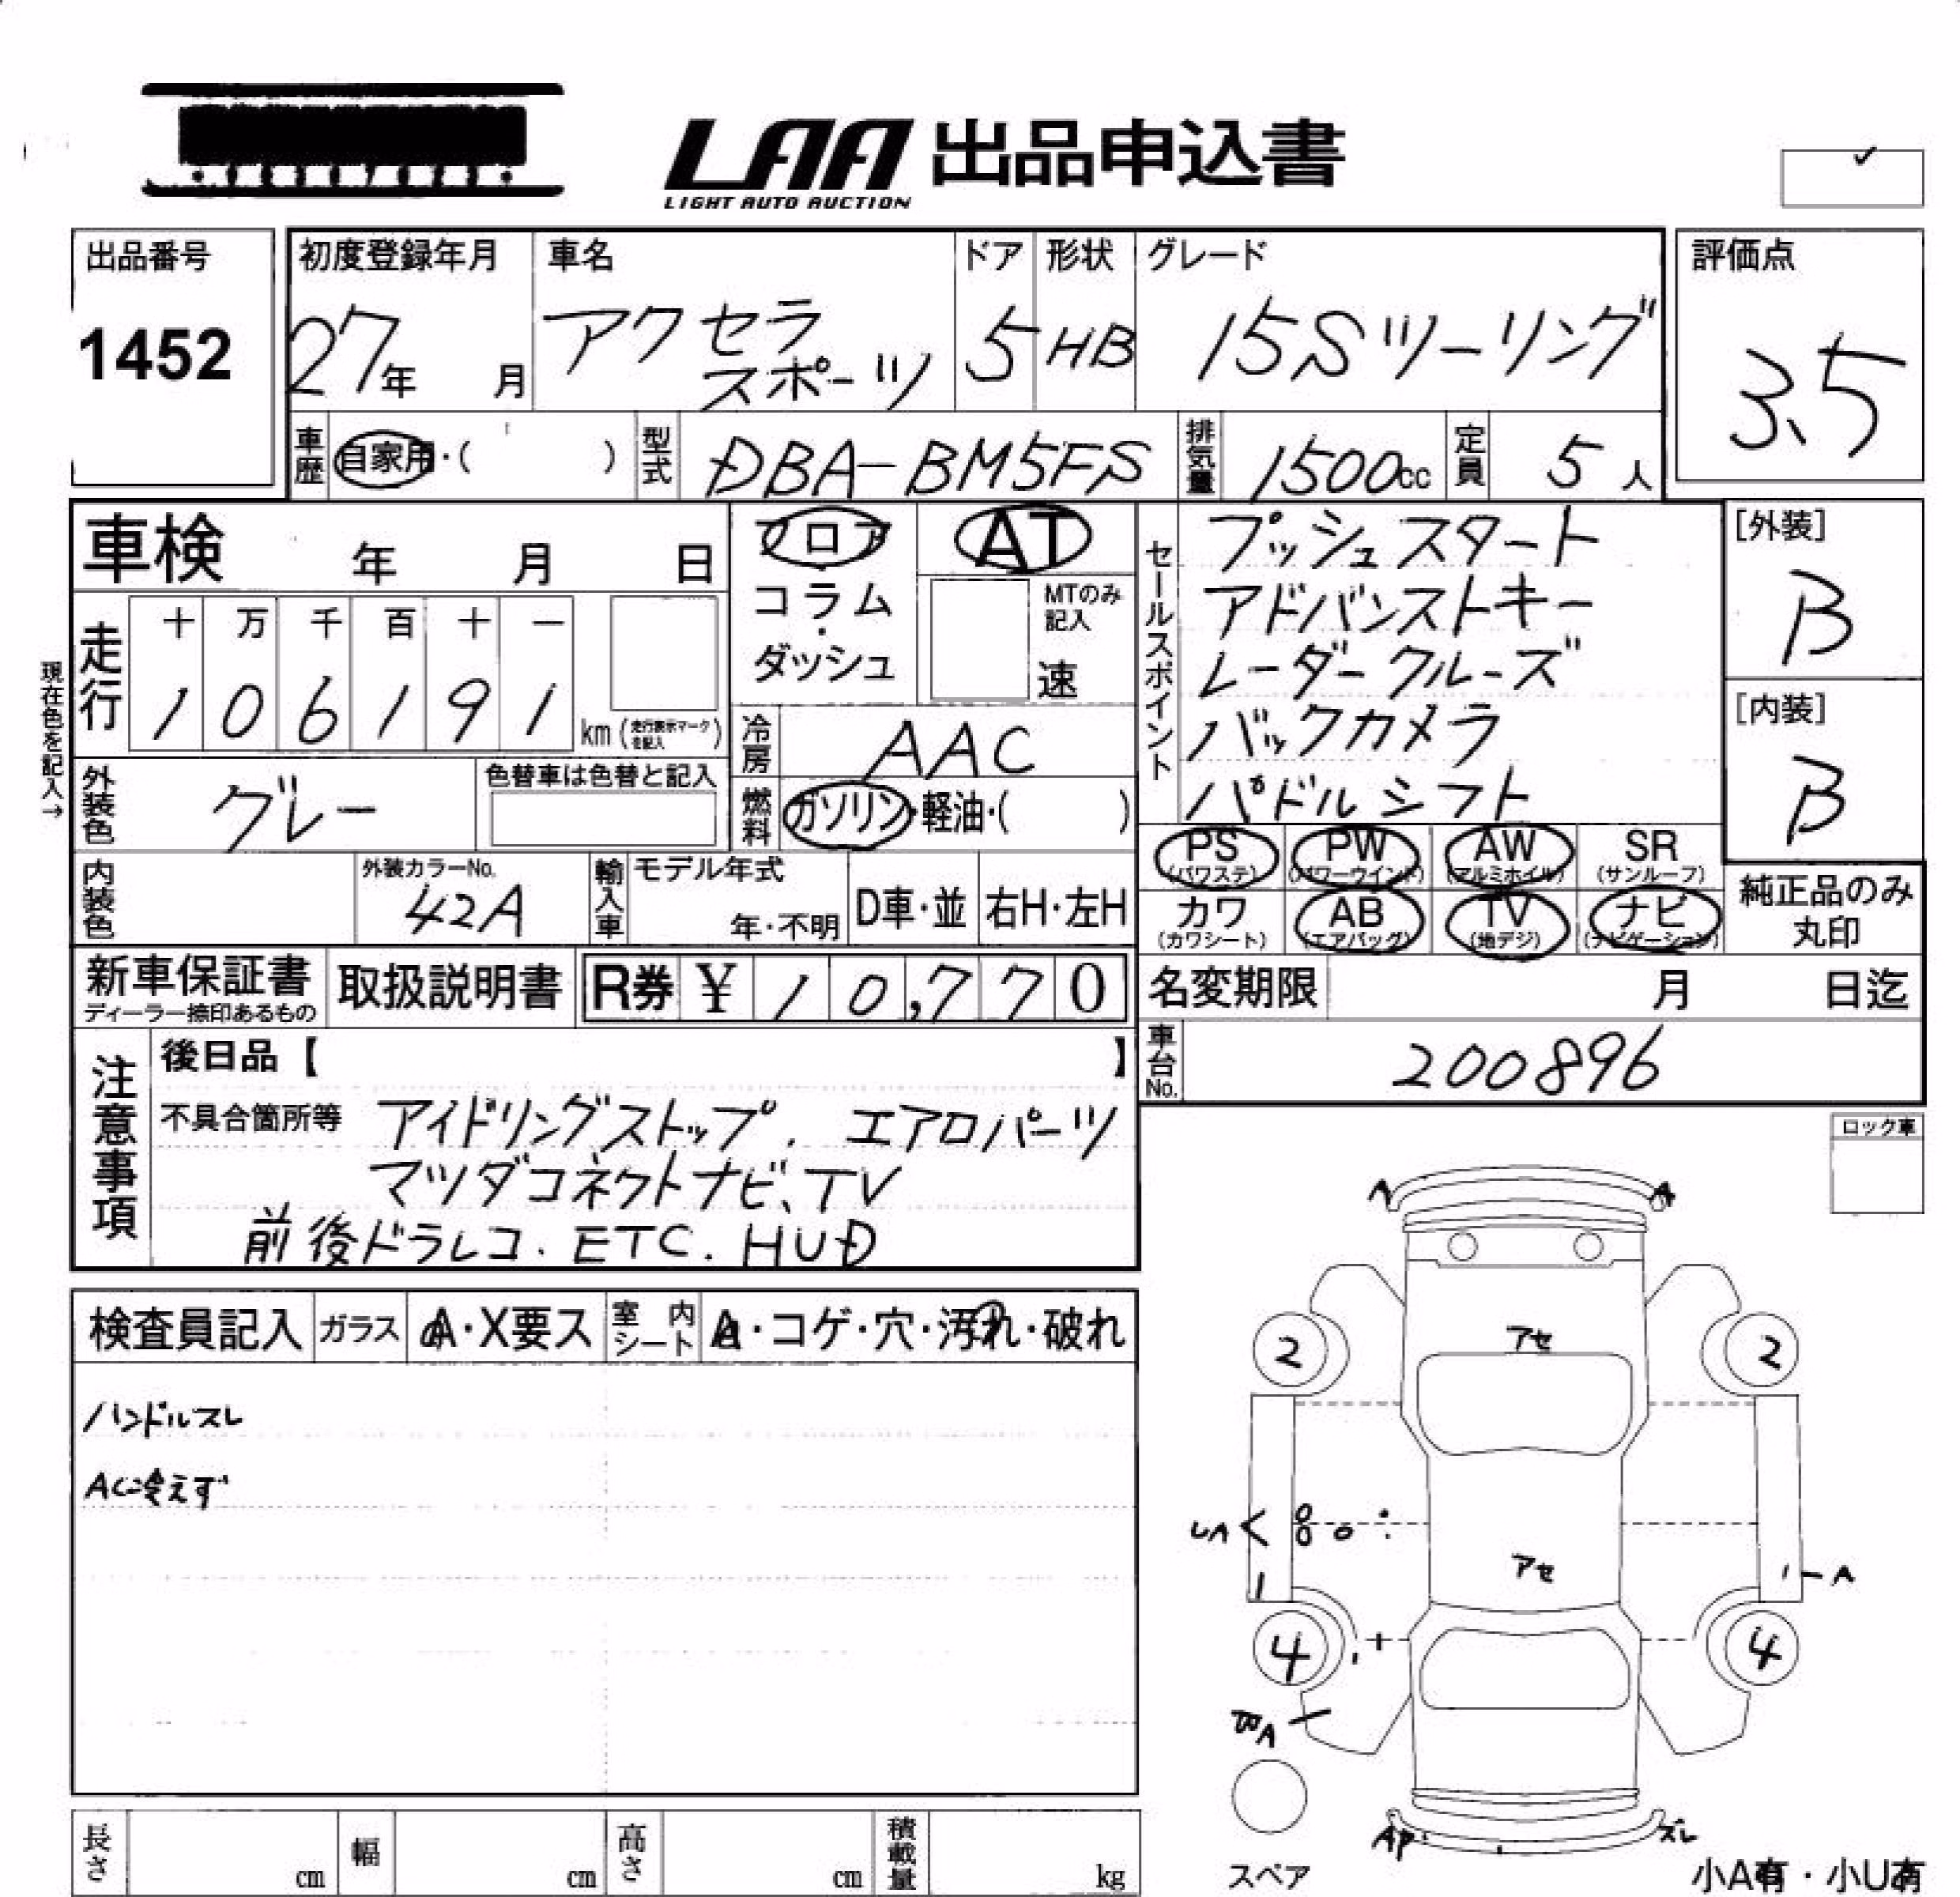 LAA 出品申込書
LIGHT AUTO AUCTION
出品番号
1452
初度登録年月
27年 月
車名
アクセラ
スポーツ
ドア
5
形状
HB
グレード
15Sツーリング
評価点
3.5
車歴 自家用・( )
型式 DBA-BM5FS
排気量 1500cc
定員 5人
車検 年 月 日
フロア
コラム
・
ダッシュ
AT
MTのみ
記入
速
セールスポイント
プッシュスタート
アドバンストキー
レーダークルーズ
バックカメラ
パドルシフト
[外装]
B
[内装]
B
現在色を記入→
走行
十 万 千 百 十 一
1 0 6 1 9 1 km (走行表示マークを記入)
冷房 AAC
燃料 ガソリン・軽油・( )
外装色 グレー
色替車は色替と記入
内装色
外装カラーNo.
42A
輸入車
モデル年式
年・不明
D車・並
右H・左H
PS (パワステ)
PW (パワーウインド)
AW (アルミホイル)
SR (サンルーフ)
カワ (カワシート)
AB (エアバッグ)
TV (地デジ)
ナビ (ナビゲーション)
純正品のみ
丸印
新車保証書
ディーラー捺印あるもの
取扱説明書
R券 ¥ 10,770
名変期限 月 日迄
車台No. 200896
注意事項
後日品【 】
不具合箇所等 アイドリングストップ. エアロパーツ
マツダコネクトナビ、TV
前後ドラレコ. ETC. HUD
ロック車
検査員記入
ガラス A・X要ス
室内シート A・コゲ・穴・汚れ・破れ
ハンドルスレ
AC冷えず
A
アセ
2
2
UA
アセ
A
4
4
A
AP
ズレ
スペア
長さ cm
幅 cm
高さ cm
積載量 kg
小A有・小U有